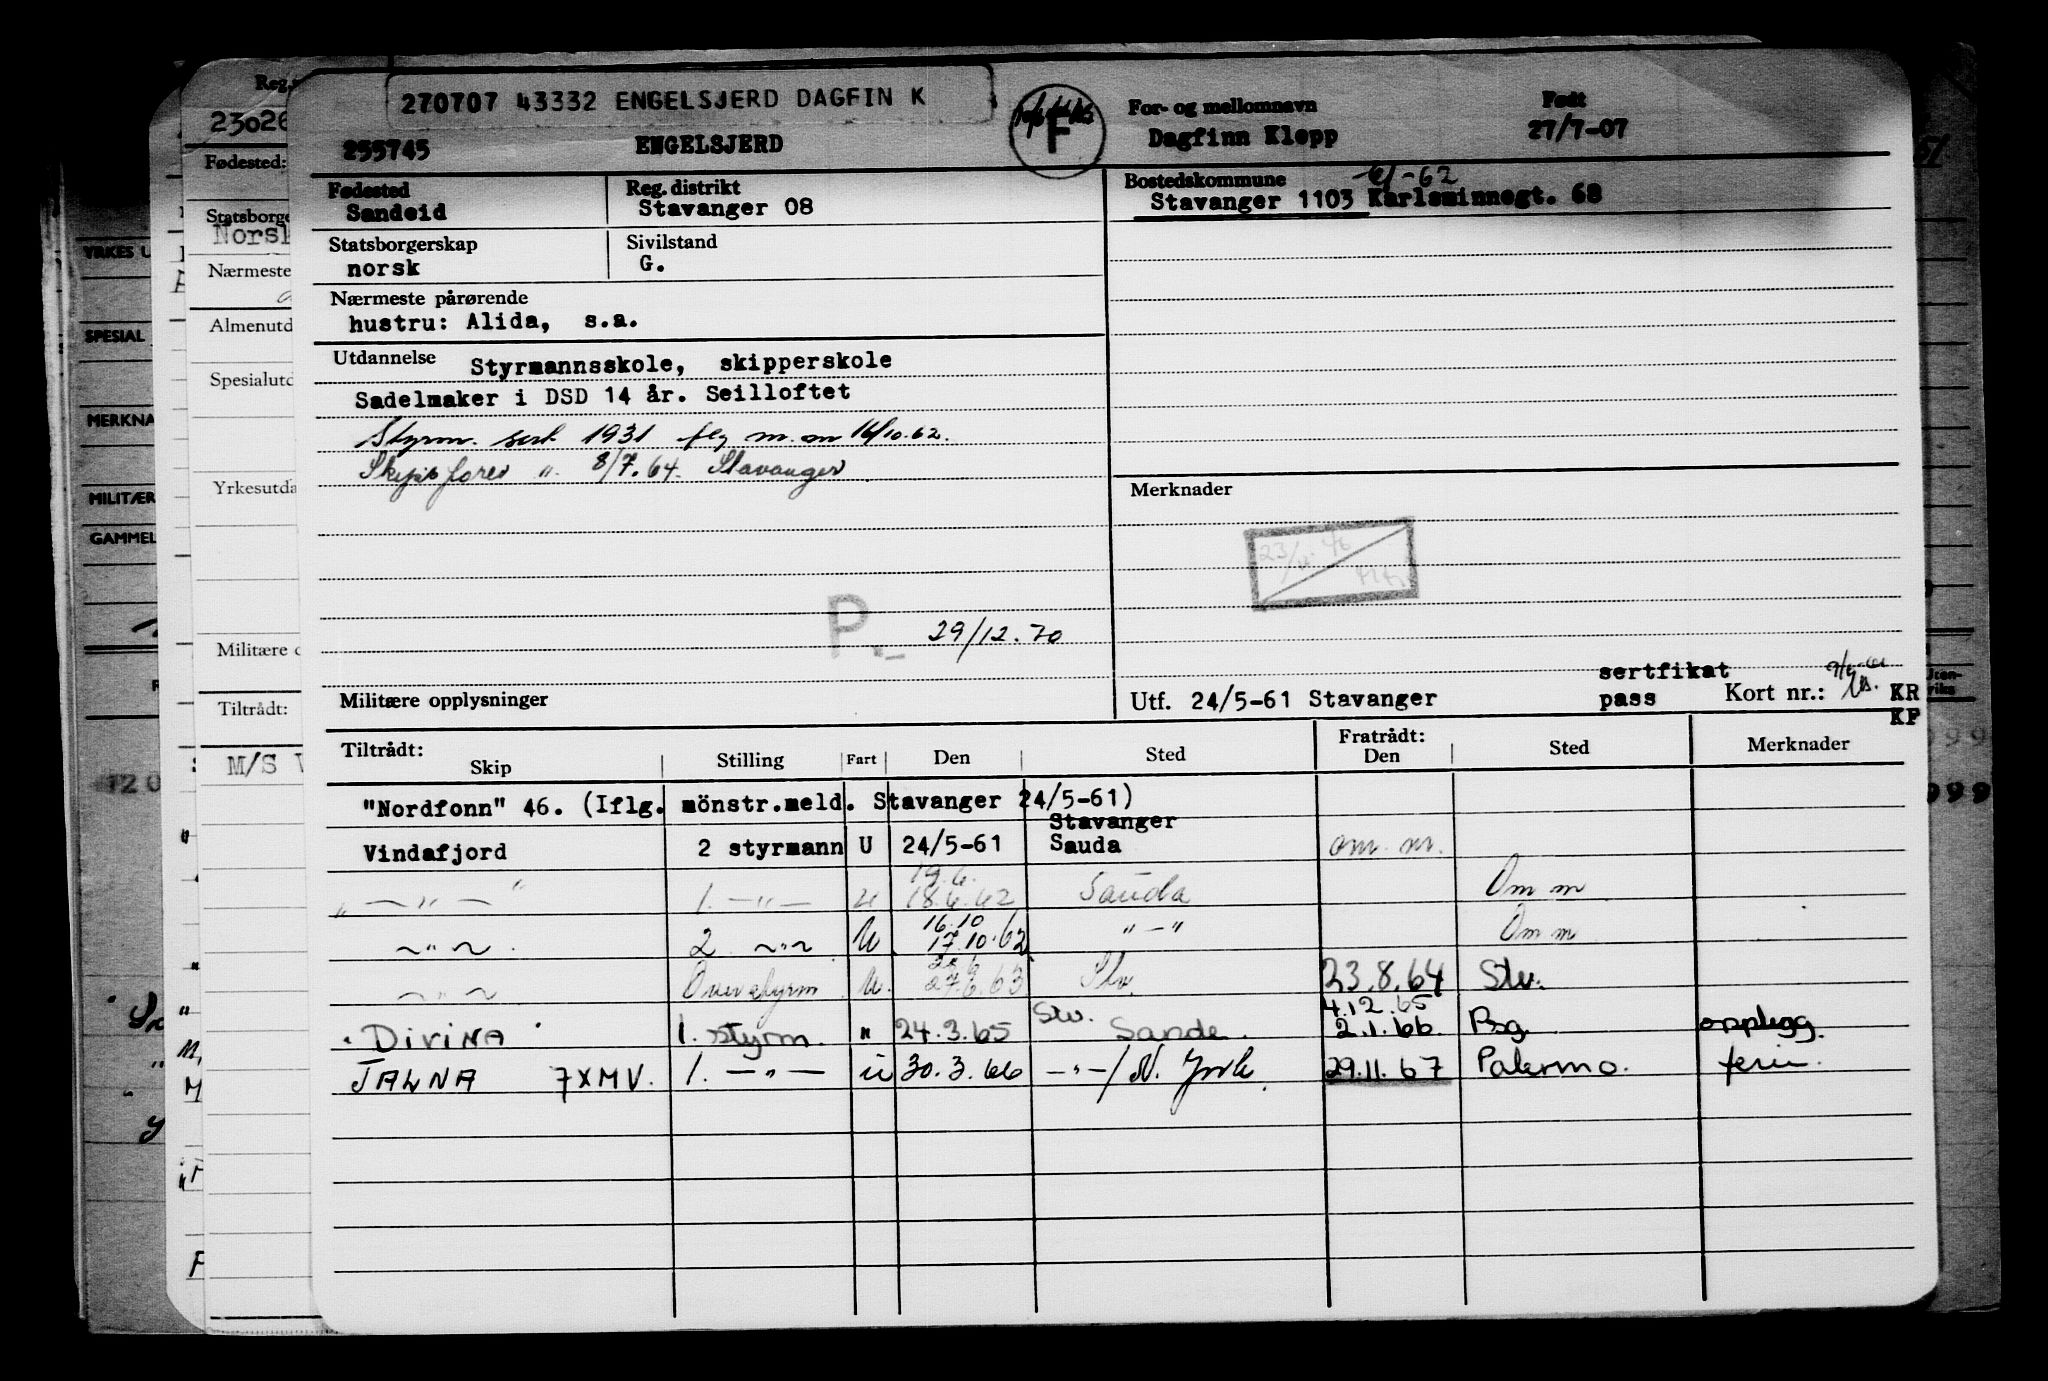 270707 43332 ENGELSJERD DAGFIN K
255745 ENGELSJERD
F
For- og mellomnavn
Dagfinn Klepp
Født
27/7-07
Fødested
Sandeid
Reg. distrikt
Stavanger 08
Bostedskommune -61-62
Stavanger 1103 Karlsminnegt. 68
Statsborgerskap
norsk
Sivilstand
G.
Nærmeste pårørende
hustru: Alida, s.a.
Utdannelse Styrmannsskole, skipperskole
Sadelmaker i DSD 14 år. Seilloftet
Styrm. sert 1931 m. 16/10.62.
Skipsfører " 8/7.64. Stavanger
Merknader
P
29/12.70
Militære opplysninger
Utf. 24/5-61 Stavanger
sertfikat
pass
Kort nr.:
KR
KF
Tiltrådt:
Skip Stilling Fart Den Sted
Fratrådt:
Den Sted Merknader
"Nordfonn" 46. (Iflg. mönstr.meld. Stavanger 24/5-61)
Vindafjord 2 styrmann U 24/5-61 Stavanger Sauda om. m.
" — " — " 1. — " — U 19.6. 18.6.62 Sauda Om m
~ " ~ 2 ~ " ~ U 16.10 17.10.62 " — " Om m
~ " ~ Overstyrm U. 27.6.63 Stv 23.8.64 Stv.
"DIVINA" 1. styrm. " 24.3.65 Stv. Sande. 4.12.65 2.1.66 Bsg. opplegg.
JALNA 7XMV. 1. — " — U 30.3.66 — " — / N. York. 29.11.67 Palermo. ferie.
Reg.
23026
Fødested:
Statsborge
Norsk
Nærmeste
Almenutd
Spesialutd
Yrkesutda
Militære o
Tiltrådt:
M/S V
YRKES U
SPESIAL
MERKNA
MILITÆR
GAMMEL